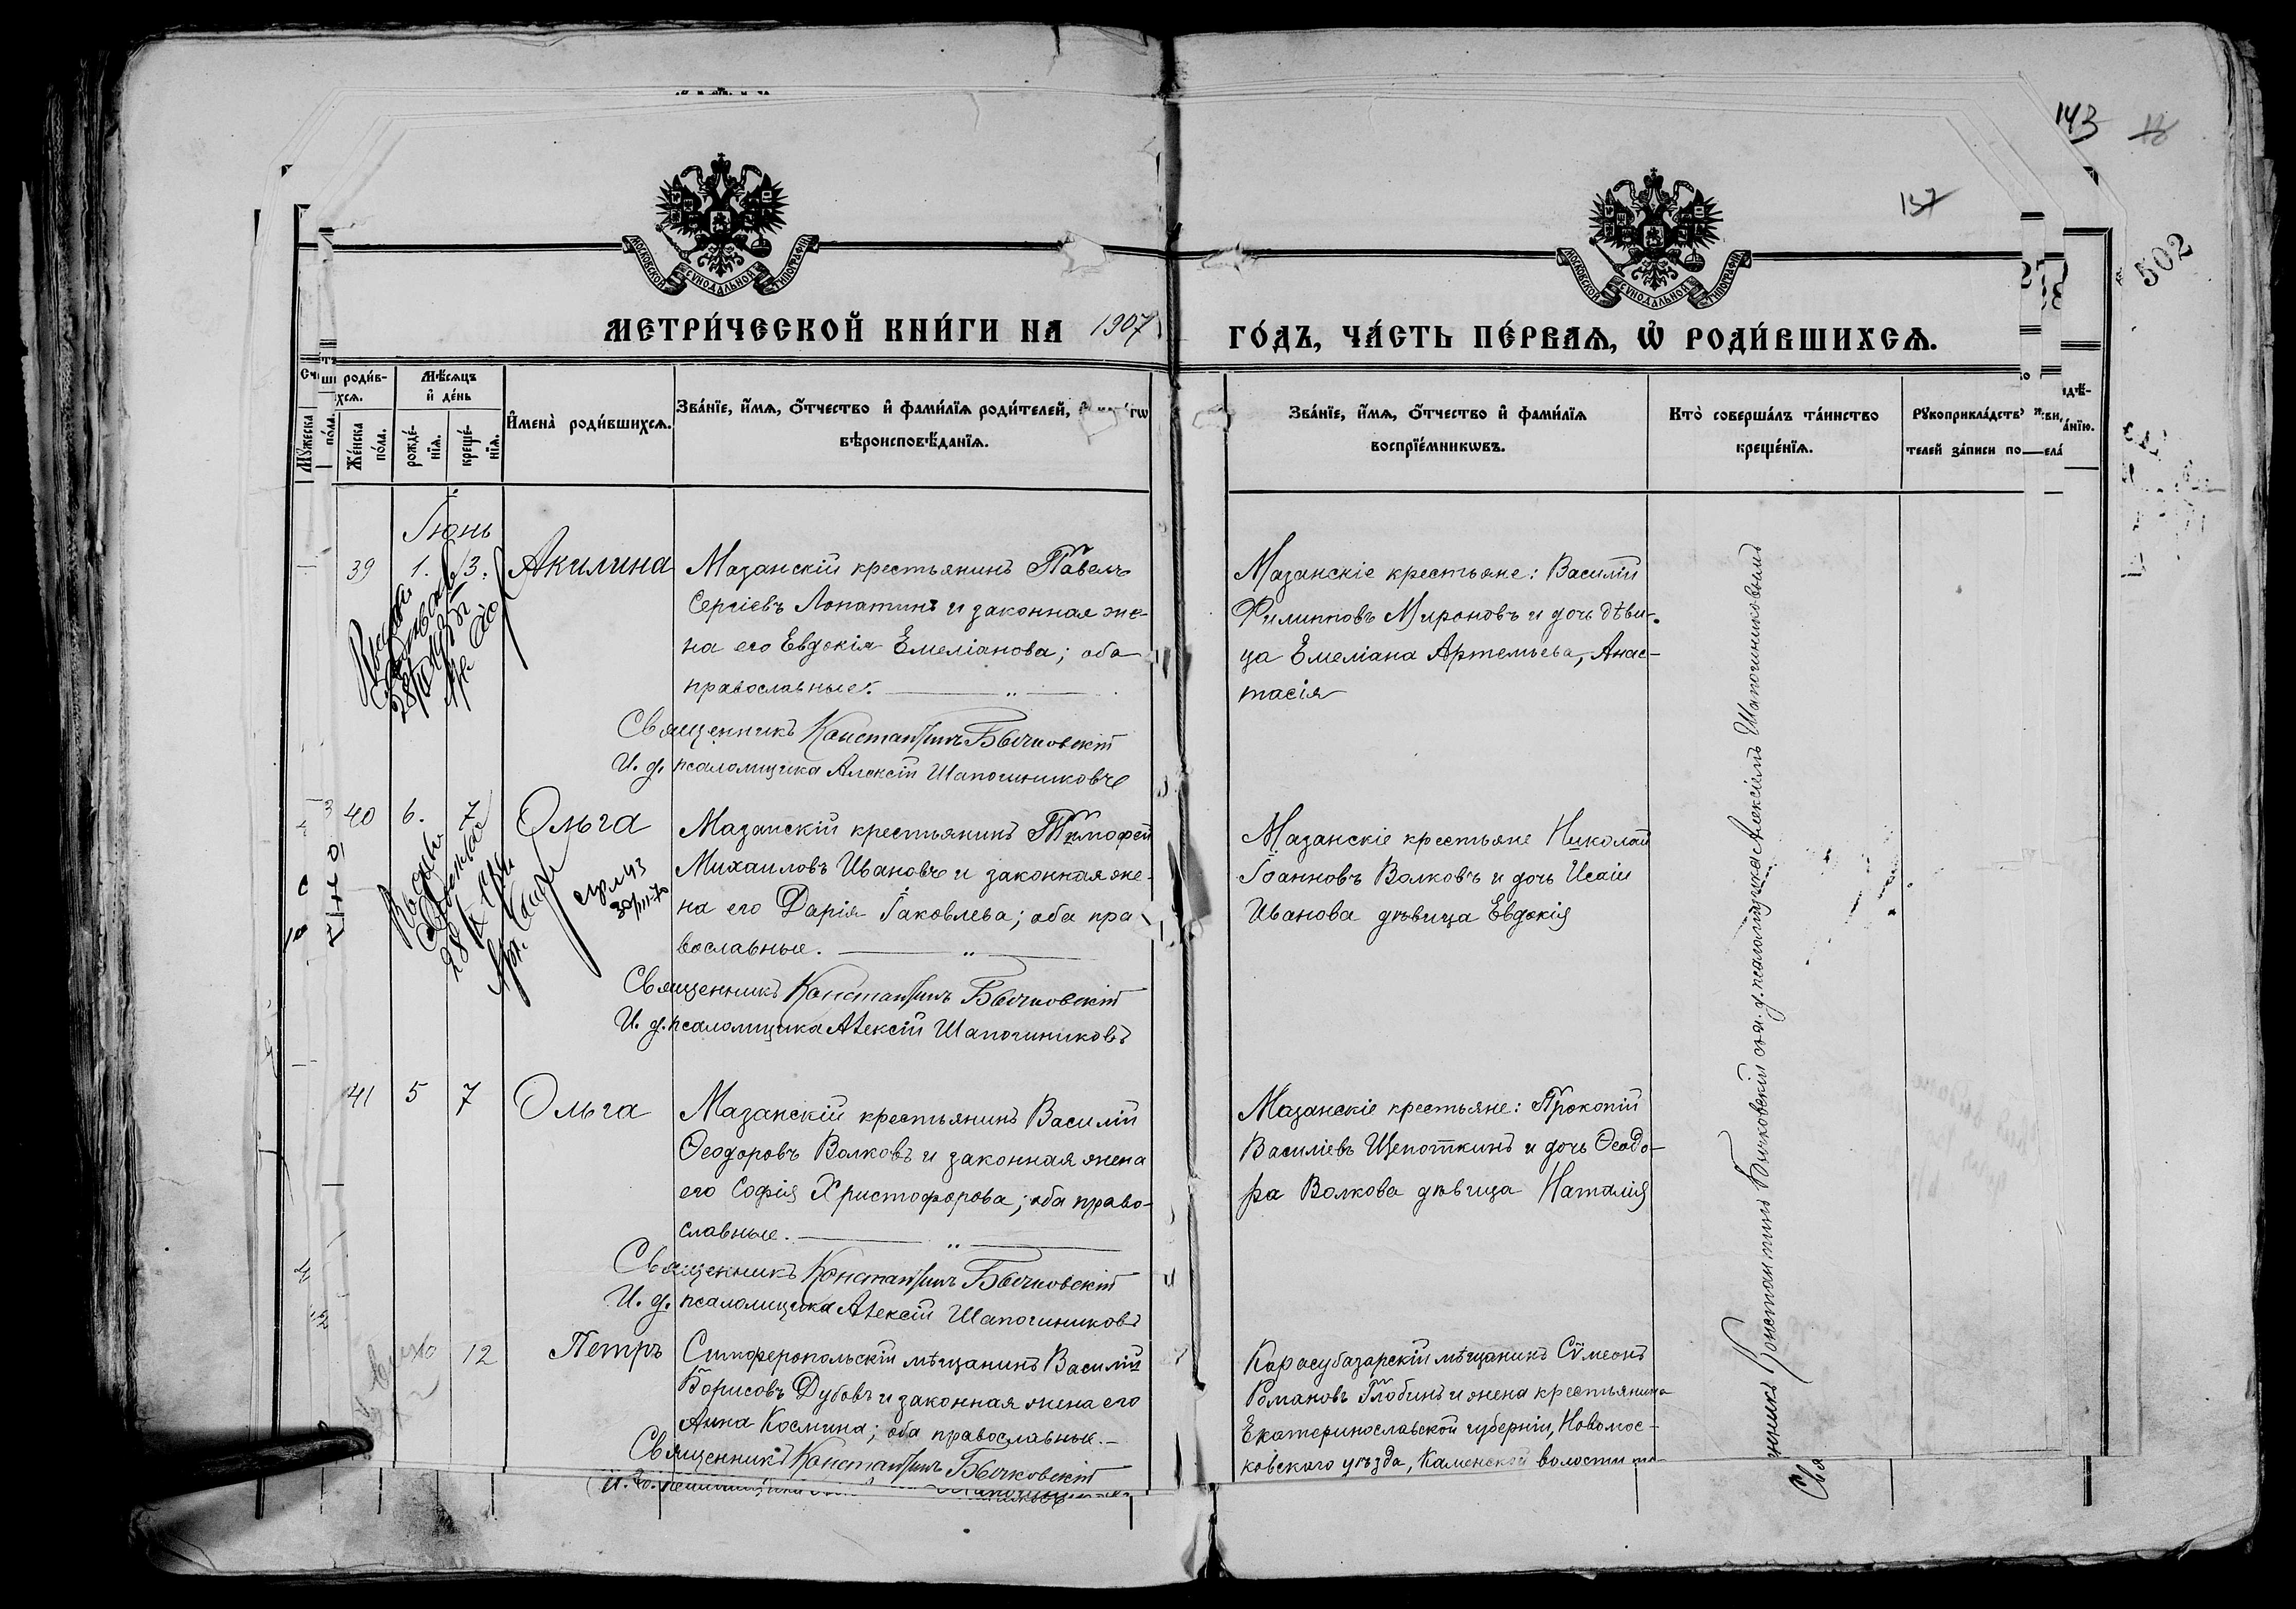 143
137
502
МОСКОВСКОЙ СѴНОДАЛЬНОЙ ТИПОГРАФІИ
МОСКОВСКОЙ СѴНОДАЛЬНОЙ ТИПОГРАФІИ
МЕТРИ́ЧЕСКОЙ КНИ́ГИ НА 1907
ГО́ДЪ, ЧА́СТЬ ПЕ́РВАѦ, Ѡ҆ РОДИ́ВШИХСѦ.
роди́в-
хсѧ.
Мꙋ́жеска
по́ла.
Же́нска
по́ла.
Мѣ́сѧцъ
и҆ де́нь
рожде́-
нїѧ.
креще́-
нїѧ.
И҆мена̀ роди́вшихсѧ.
Зва́нїе, и҆́мѧ, ѻ҆́тчество и҆ фами́лїѧ роди́телей,
вѣроисповѣ́данїѧ.
Зва́нїе, и҆́мѧ, ѻ҆́тчество и҆ фами́лїѧ
воспрїе́мникѡвъ.
Кто̀ соверша́лъ та́инство
креще́нїѧ.
Рꙋкоприкла́дство
телей за́писи по
Іюнь
39 1. 3. Акилина
Мазанскій крестьянинъ Павелъ
Сергіевъ Лопатинъ и законная же-
на его Евдокія Емеліанова; оба
православные.
Священникъ Константинъ Бычковскій
И. д. псаломщика Алексій Шапошниковъ
Мазанскіе крестьяне: Василій
Филипповъ Мироновъ и дочь дѣви-
ца Емеліана Артемьева, Анас-
тасія
40 6. 7 Ольга
Мазанскій крестьянинъ Тимофей
Михаиловъ Ивановъ и законная же-
на его Дарія Іаковлева; оба пра
вославные.
Священникъ Константинъ Бычковскій
И. д. псаломщика Алексій Шапошниковъ
Мазанскіе крестьяне Николай
Іоанновъ Волковъ и дочь Исаіи
Иванова дѣвица Евдокія
41 5 7 Ольга
Мазанскій крестьянинъ Василій
Ѳеодоровъ Волковъ и законная жена
его Софія Христофорова; оба право-
славные.
Священникъ Константинъ Бычковскій
И. д. псаломщика Алексій Шапошниковъ
Мазанскіе крестьяне: Прокопій
Василіевъ Щепоткинъ и дочь Ѳеодо-
ра Волкова дѣвица Наталія
12 Петръ
Симферопольскій мѣщанинъ Василій
Борисовъ Дубовъ и законная жена его
Анна Космина; оба православные.
Священникъ Константинъ Бычковскій
Карасубазарскій мѣщанинъ Сѵмеонъ
Романовъ Глобинъ и жена крестьянина
Екатеринославской губерніи, Новомос-
ковскаго уѣзда, Каменской волости
Священникъ Константинъ Бычковскій съ и. д. псаломщика Алексіемъ Шапошниковымъ